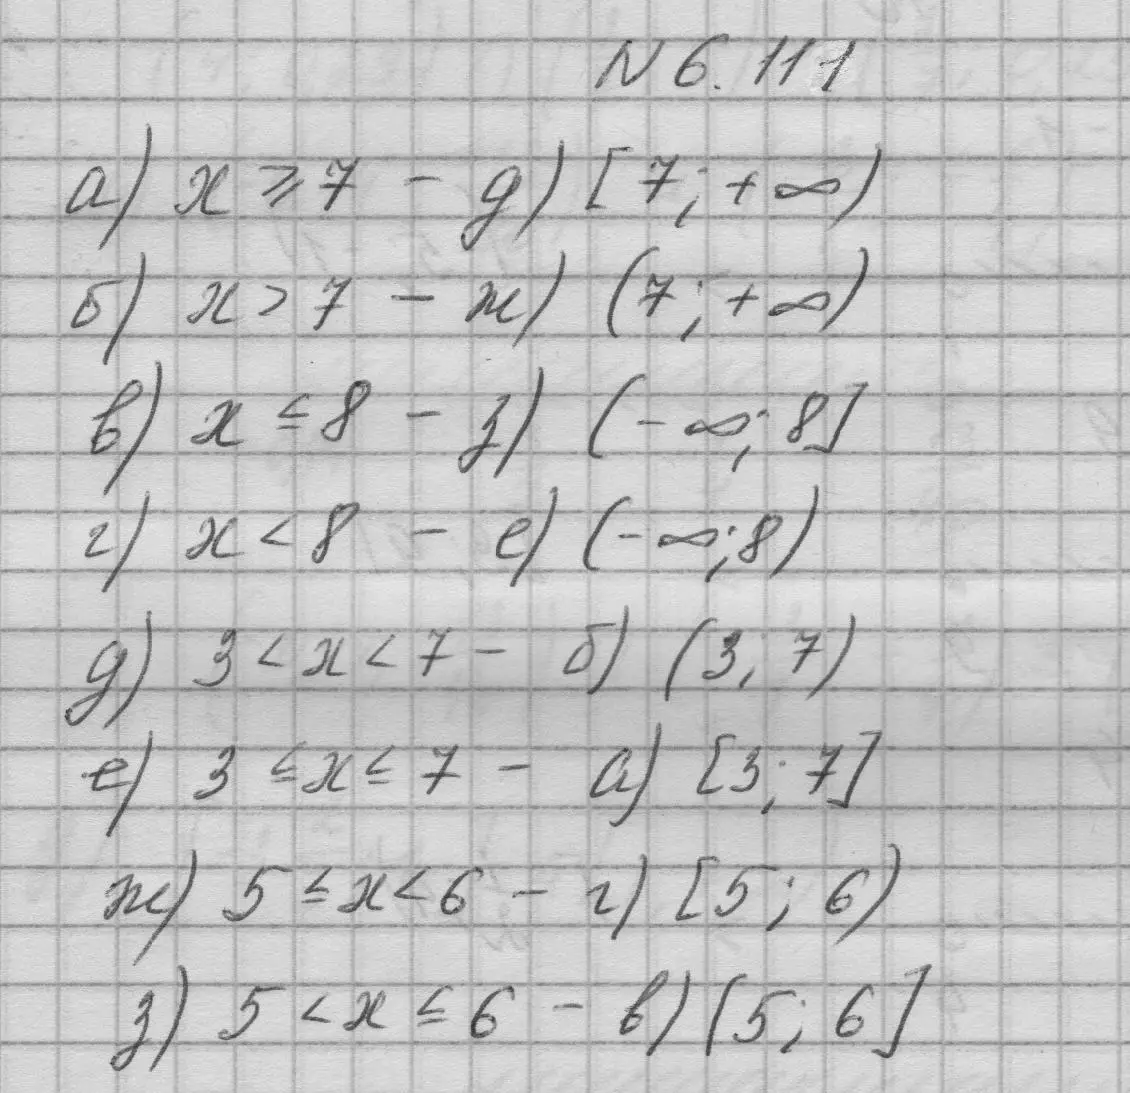 N 6.111
а) x ⩾ 7 - д) [7; +∞)
б) x > 7 - ж) (7; +∞)
в) x ≤ 8 - з) (-∞; 8]
г) x < 8 - е) (-∞; 8)
д) 3 < x < 7 - б) (3; 7)
е) 3 ≤ x ≤ 7 - а) [3; 7]
ж) 5 ≤ x < 6 - г) [5; 6)
з) 5 < x ≤ 6 - в) (5; 6]